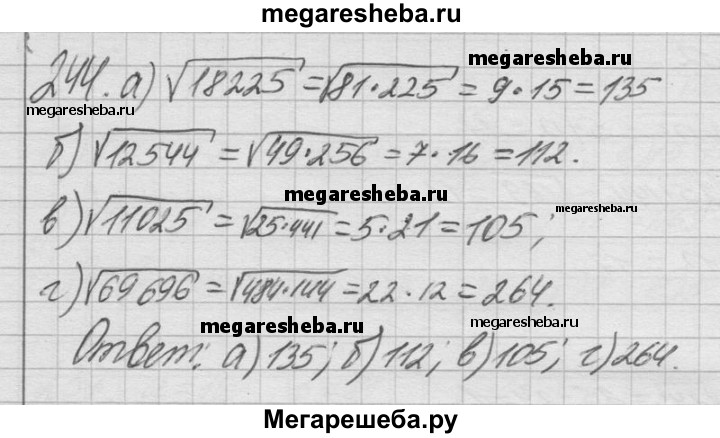 megaresheba.ru
244. а) √18225 = √81·225 = 9·15 = 135
megaresheba.ru
megaresheba.ru
б) √12544 = √49·256 = 7·16 = 112.
megaresheba.ru
в) √11025 = √25·441 = 5·21 = 105;
megaresheba.ru
г) √69696 = √484·144 = 22·12 = 264.
megaresheba.ru
megaresheba.ru
Ответ: а) 135; б) 112; в) 105; г) 264.
Мегарешеба.ру